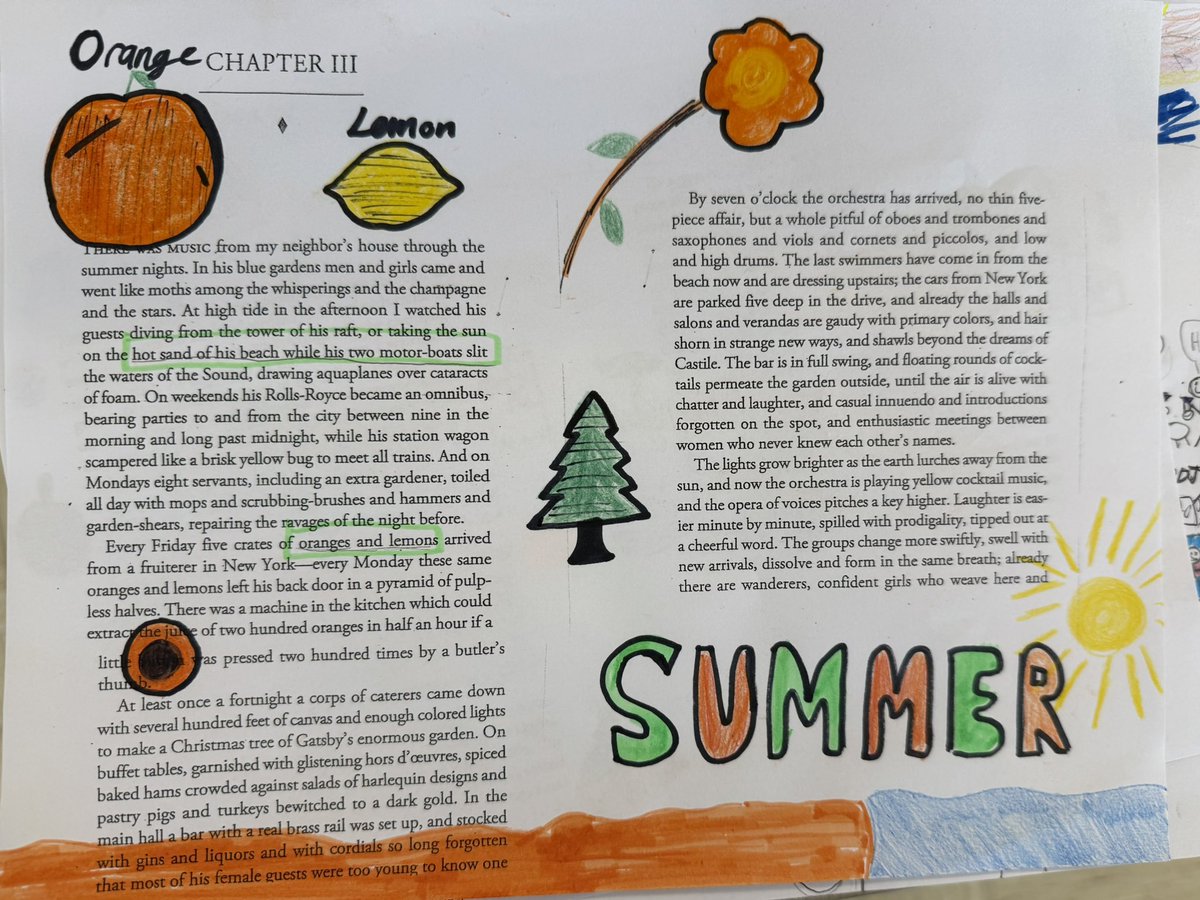 Orange
CHAPTER III
Lemon
THERE WAS MUSIC from my neighbor's house through the
summer nights. In his blue gardens men and girls came and
went like moths among the whisperings and the champagne
and the stars. At high tide in the afternoon I watched his
guests diving from the tower of his raft, or taking the sun
on the hot sand of his beach while his two motor-boats slit
the waters of the Sound, drawing aquaplanes over cataracts
of foam. On weekends his Rolls-Royce became an omnibus,
bearing parties to and from the city between nine in the
morning and long past midnight, while his station wagon
scampered like a brisk yellow bug to meet all trains. And on
Mondays eight servants, including an extra gardener, toiled
all day with mops and scrubbing-brushes and hammers and
garden-shears, repairing the ravages of the night before.
Every Friday five crates of oranges and lemons arrived
from a fruiterer in New York—every Monday these same
oranges and lemons left his back door in a pyramid of pulp-
less halves. There was a machine in the kitchen which could
extract the juice of two hundred oranges in half an hour if a
little button was pressed two hundred times by a butler's
thumb.
At least once a fortnight a corps of caterers came down
with several hundred feet of canvas and enough colored lights
to make a Christmas tree of Gatsby's enormous garden. On
buffet tables, garnished with glistening hors d'œuvres, spiced
baked hams crowded against salads of harlequin designs and
pastry pigs and turkeys bewitched to a dark gold. In the
main hall a bar with a real brass rail was set up, and stocked
with gins and liquors and with cordials so long forgotten
that most of his female guests were too young to know one
By seven o'clock the orchestra has arrived, no thin five-
piece affair, but a whole pitful of oboes and trombones and
saxophones and viols and cornets and piccolos, and low
and high drums. The last swimmers have come in from the
beach now and are dressing upstairs; the cars from New York
are parked five deep in the drive, and already the halls and
salons and verandas are gaudy with primary colors, and hair
shorn in strange new ways, and shawls beyond the dreams of
Castile. The bar is in full swing, and floating rounds of cock-
tails permeate the garden outside, until the air is alive with
chatter and laughter, and casual innuendo and introductions
forgotten on the spot, and enthusiastic meetings between
women who never knew each other's names.
The lights grow brighter as the earth lurches away from the
sun, and now the orchestra is playing yellow cocktail music,
and the opera of voices pitches a key higher. Laughter is eas-
ier minute by minute, spilled with prodigality, tipped out at
a cheerful word. The groups change more swiftly, swell with
new arrivals, dissolve and form in the same breath; already
there are wanderers, confident girls who weave here and
SUMMER